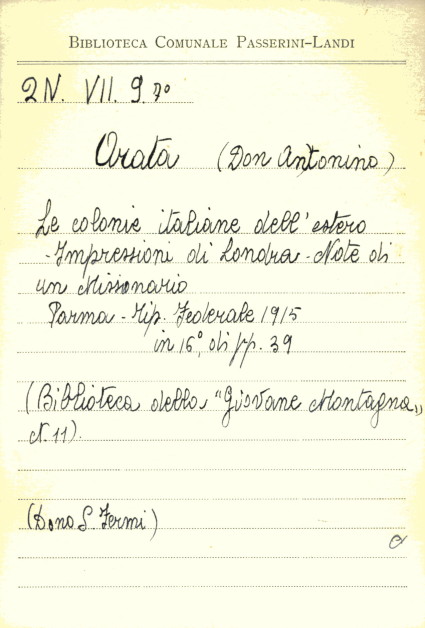 BIBLIOTECA COMUNALE PASSERINI-LANDI
2N. VII. 9. 7º
Orata (Don Antonino)
Le colonie italiane dell'estero
- Impressioni di Londra - Note di
un Missionario
Parma - Tip. Federale 1915
in 16º, di pp. 39
(Biblioteca della "Giovane Montagna„
N. 11).
(Dono S. Fermi)